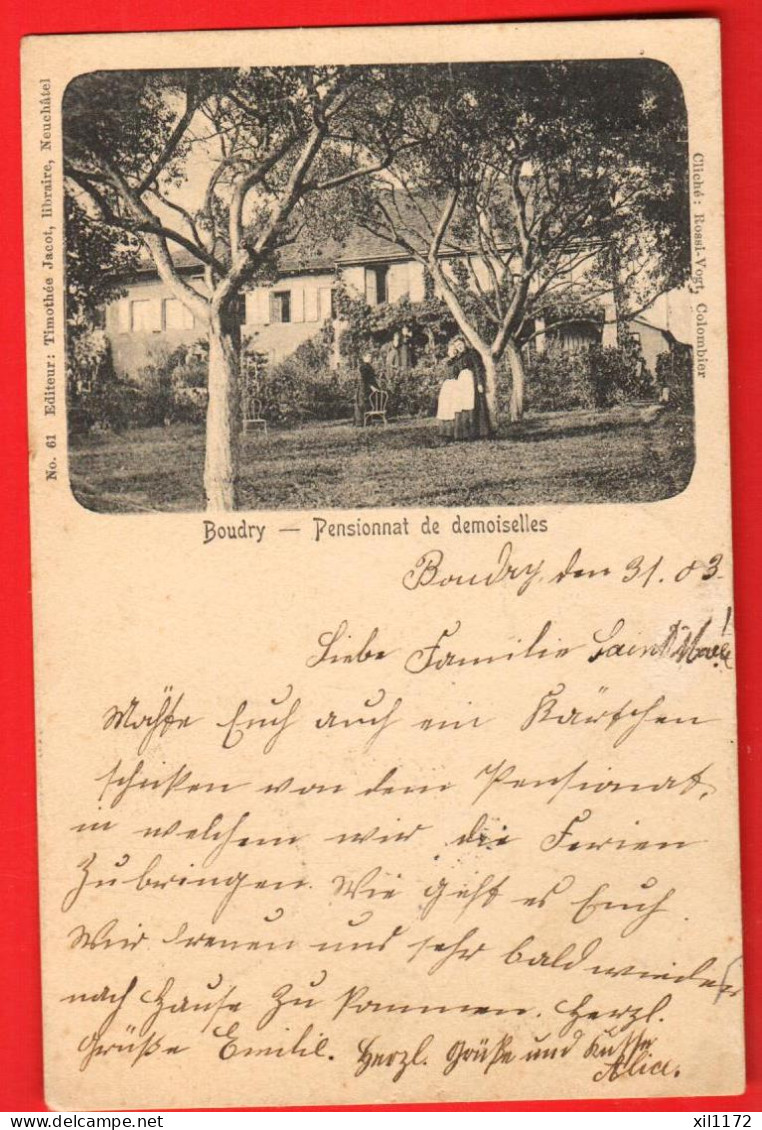 No. 61 Editeur: Timothée Jacot, libraire, Neuchâtel
Cliché: Rossi-Vogt, Colombier
Boudry — Pensionnat de demoiselles
Boudry, den 31. 03.
Liebe Familie Saint
Möchte Euch auch ein Kärtchen
schicken von dem Pensionat,
in welchem wir die Ferien
zubringen. Wie geht es Euch
Wir freuen uns sehr bald wieder
nach Hause zu kommen. Herzl.
Grüße Emilie. Herzl. Grüße und Küsse
Alice.
delcampe.net
xil1172